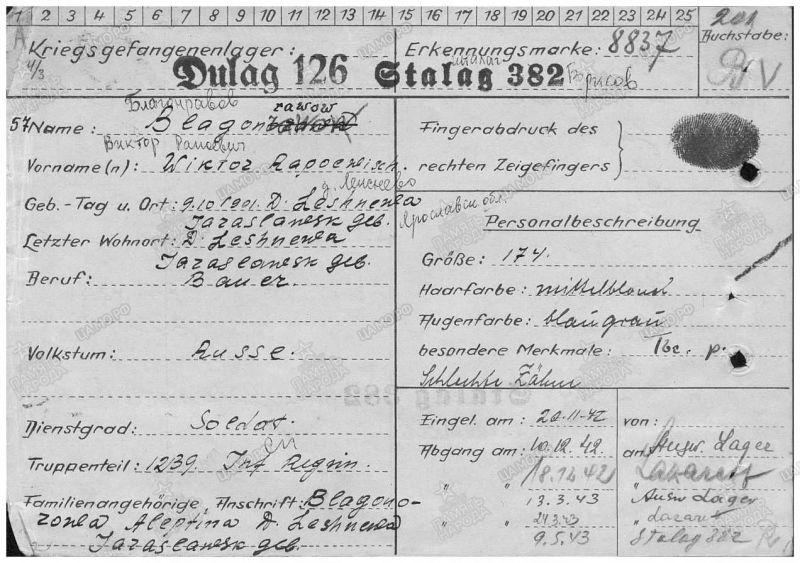 1 2 3 4 5 6 7 8 9 10 11 12 13 14 15 16 17 18 19 20 21 22 23 24 25
201
Kriegsgefangenenlager:
4/3
Dulag 126 Stalag 382
Erkennungsmarke: 8837
Борисов
Buchstabe:
V
Благонравов
57 Name: Blagon rawow
Виктор
Vorname(n): Wiktor
Geb.-Tag u. Ort: 9.10.1901. D. Leshnewa
Jaraslawesk geb.
Ярославск обл
Letzter Wohnort: D. Leshnewa
Jaraslawesk geb.
Beruf: Bauer.
Volkstum: Russe.
Dienstgrad: Soldat.
Truppenteil: 1239. Inf Regim.
Сп
Familienangehörige, Anschrift: Blagono-
Aleptina D. Leshnewa
Jaraslawesk geb.
Fingerabdruck des
rechten Zeigefingers
Personalbeschreibung
Größe: 174.
Haarfarbe: mittelblond
Augenfarbe: blaugrau
besondere Merkmale: Tbc. p.
Schlechte Zähne
Eingel. am: 20.11.42 von:
Abgang am: 10.12.42 an Ausw Lager
" " 18.12.42 " Lazarett
" " 13.3.43 " Ausw Lager
" " 24.3.43 " Lazarett
9.5.43 Stalag 382
Stalag 382
ЦАМО РФ
ПАМЯТЬ НАРОДА